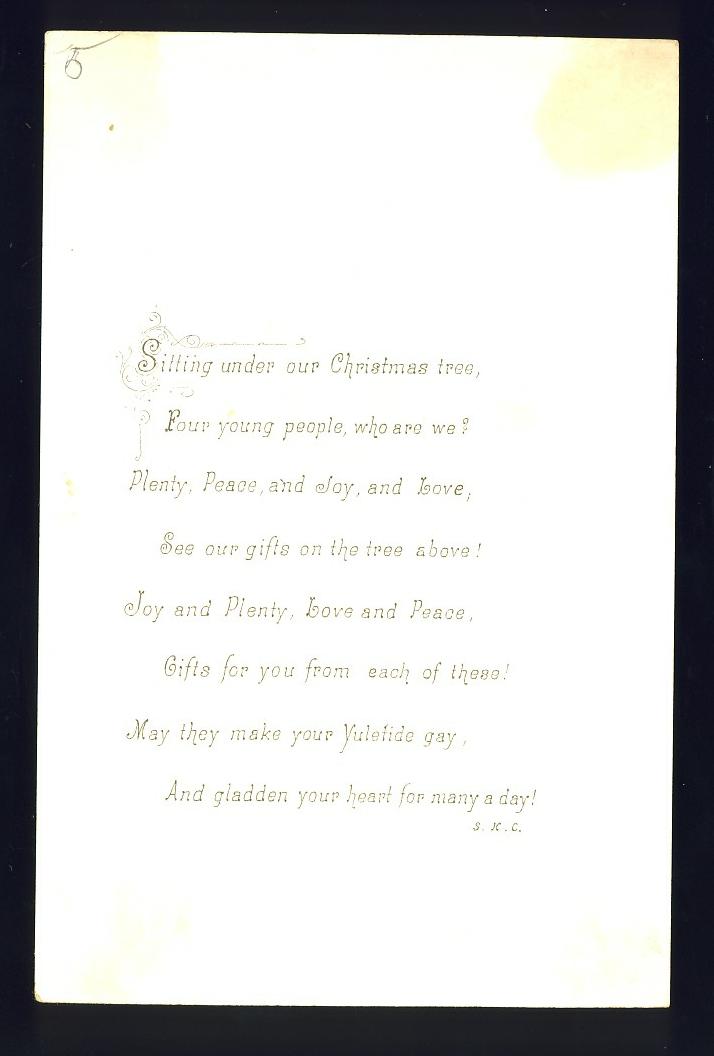 5
Sitting under our Christmas tree,
Four young people, who are we?
Plenty, Peace, and Joy, and Love;
See our gifts on the tree above!
Joy and Plenty, Love and Peace,
Gifts for you from each of these!
May they make your Yuletide gay,
And gladden your heart for many a day!
S. K. C.